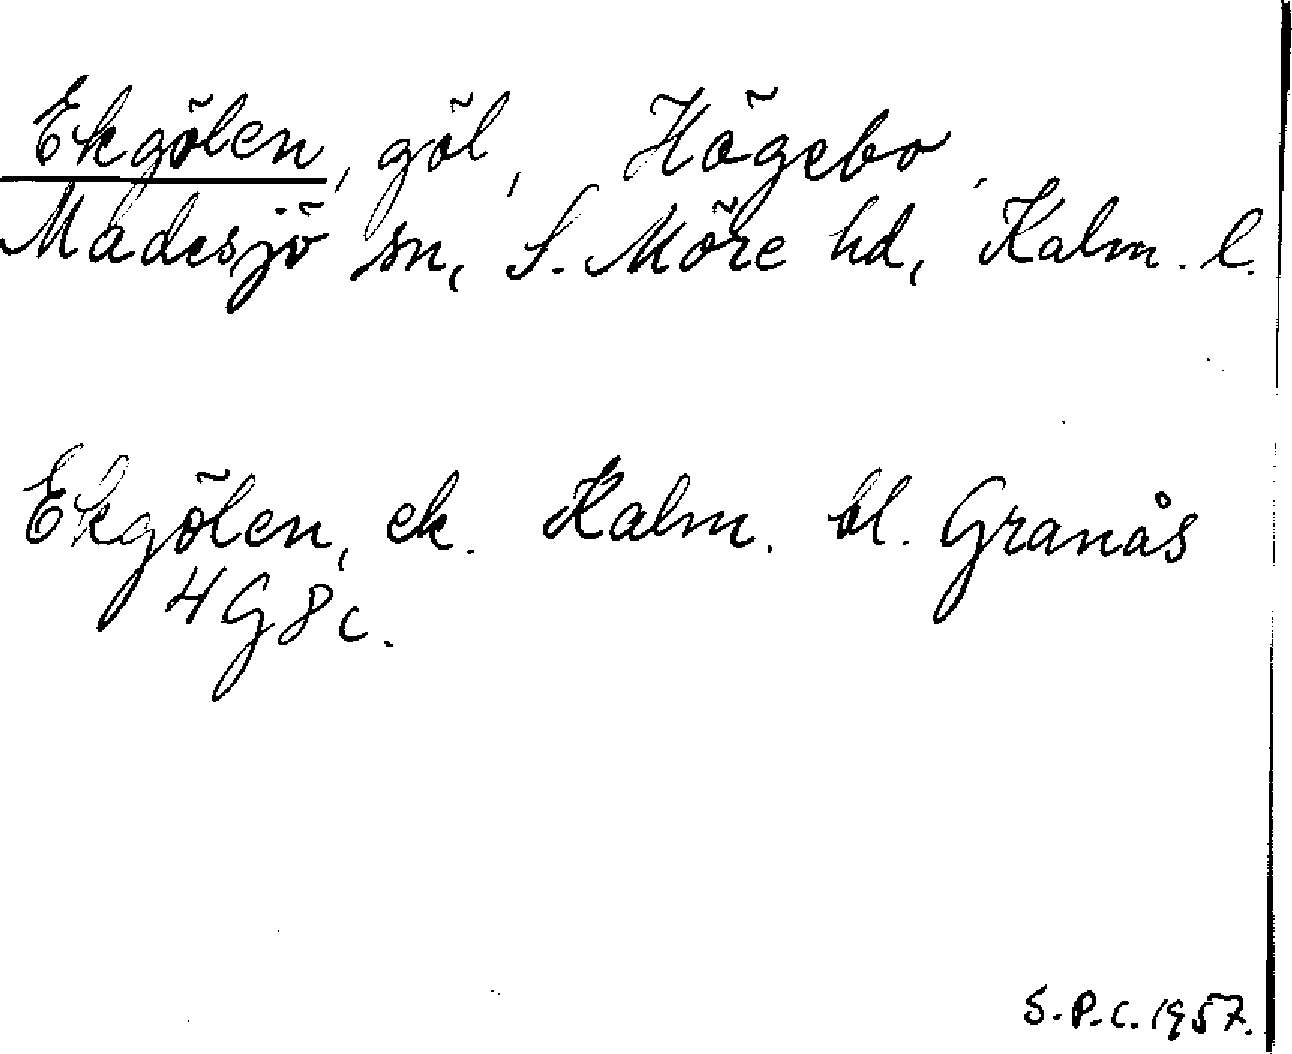 Ekgölen, göl, Högebo,
Madesjö sn, S. Möre hd, Kalm. l.
Ekgölen, ek. Kalm. bl. Granås
4G8c.
S.P.C. 1957.